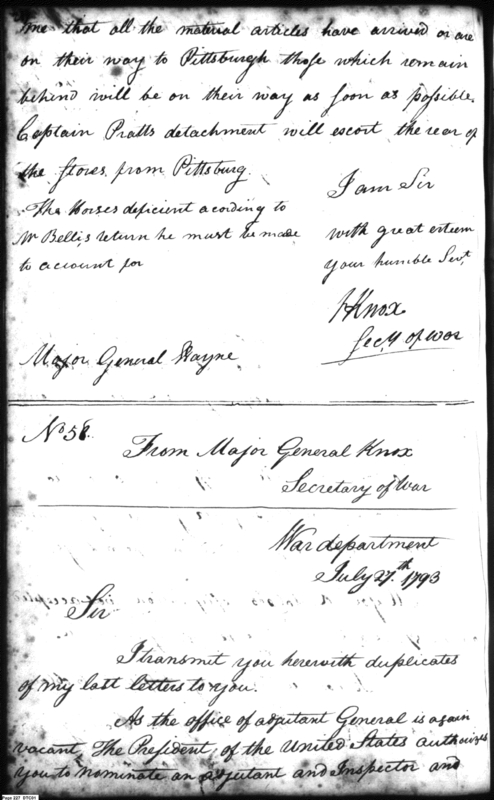 me that all the material articles have arrived or are
on their way to Pittsburgh those which remain
behind will be on their way as soon as possible.
Captain Pratts detachment will escort the rear of
the stores from Pittsburg.
I am Sir
The Horses deficient acording to
Mr Bellis return he must be made
to account for
with great esteem
your humble Servt
HKnox
Secy of War
Major General Wayne
No 58.
From Major General Knox
Secretary of War
War department
July 27th 1793
Sir
I transmit you herewith duplicates
of my last letters to you.
As the office of adjutant General is again
vacant The President of the United States authorizes
you to nominate an adjutant and Inspector and
Page 227 DTC91